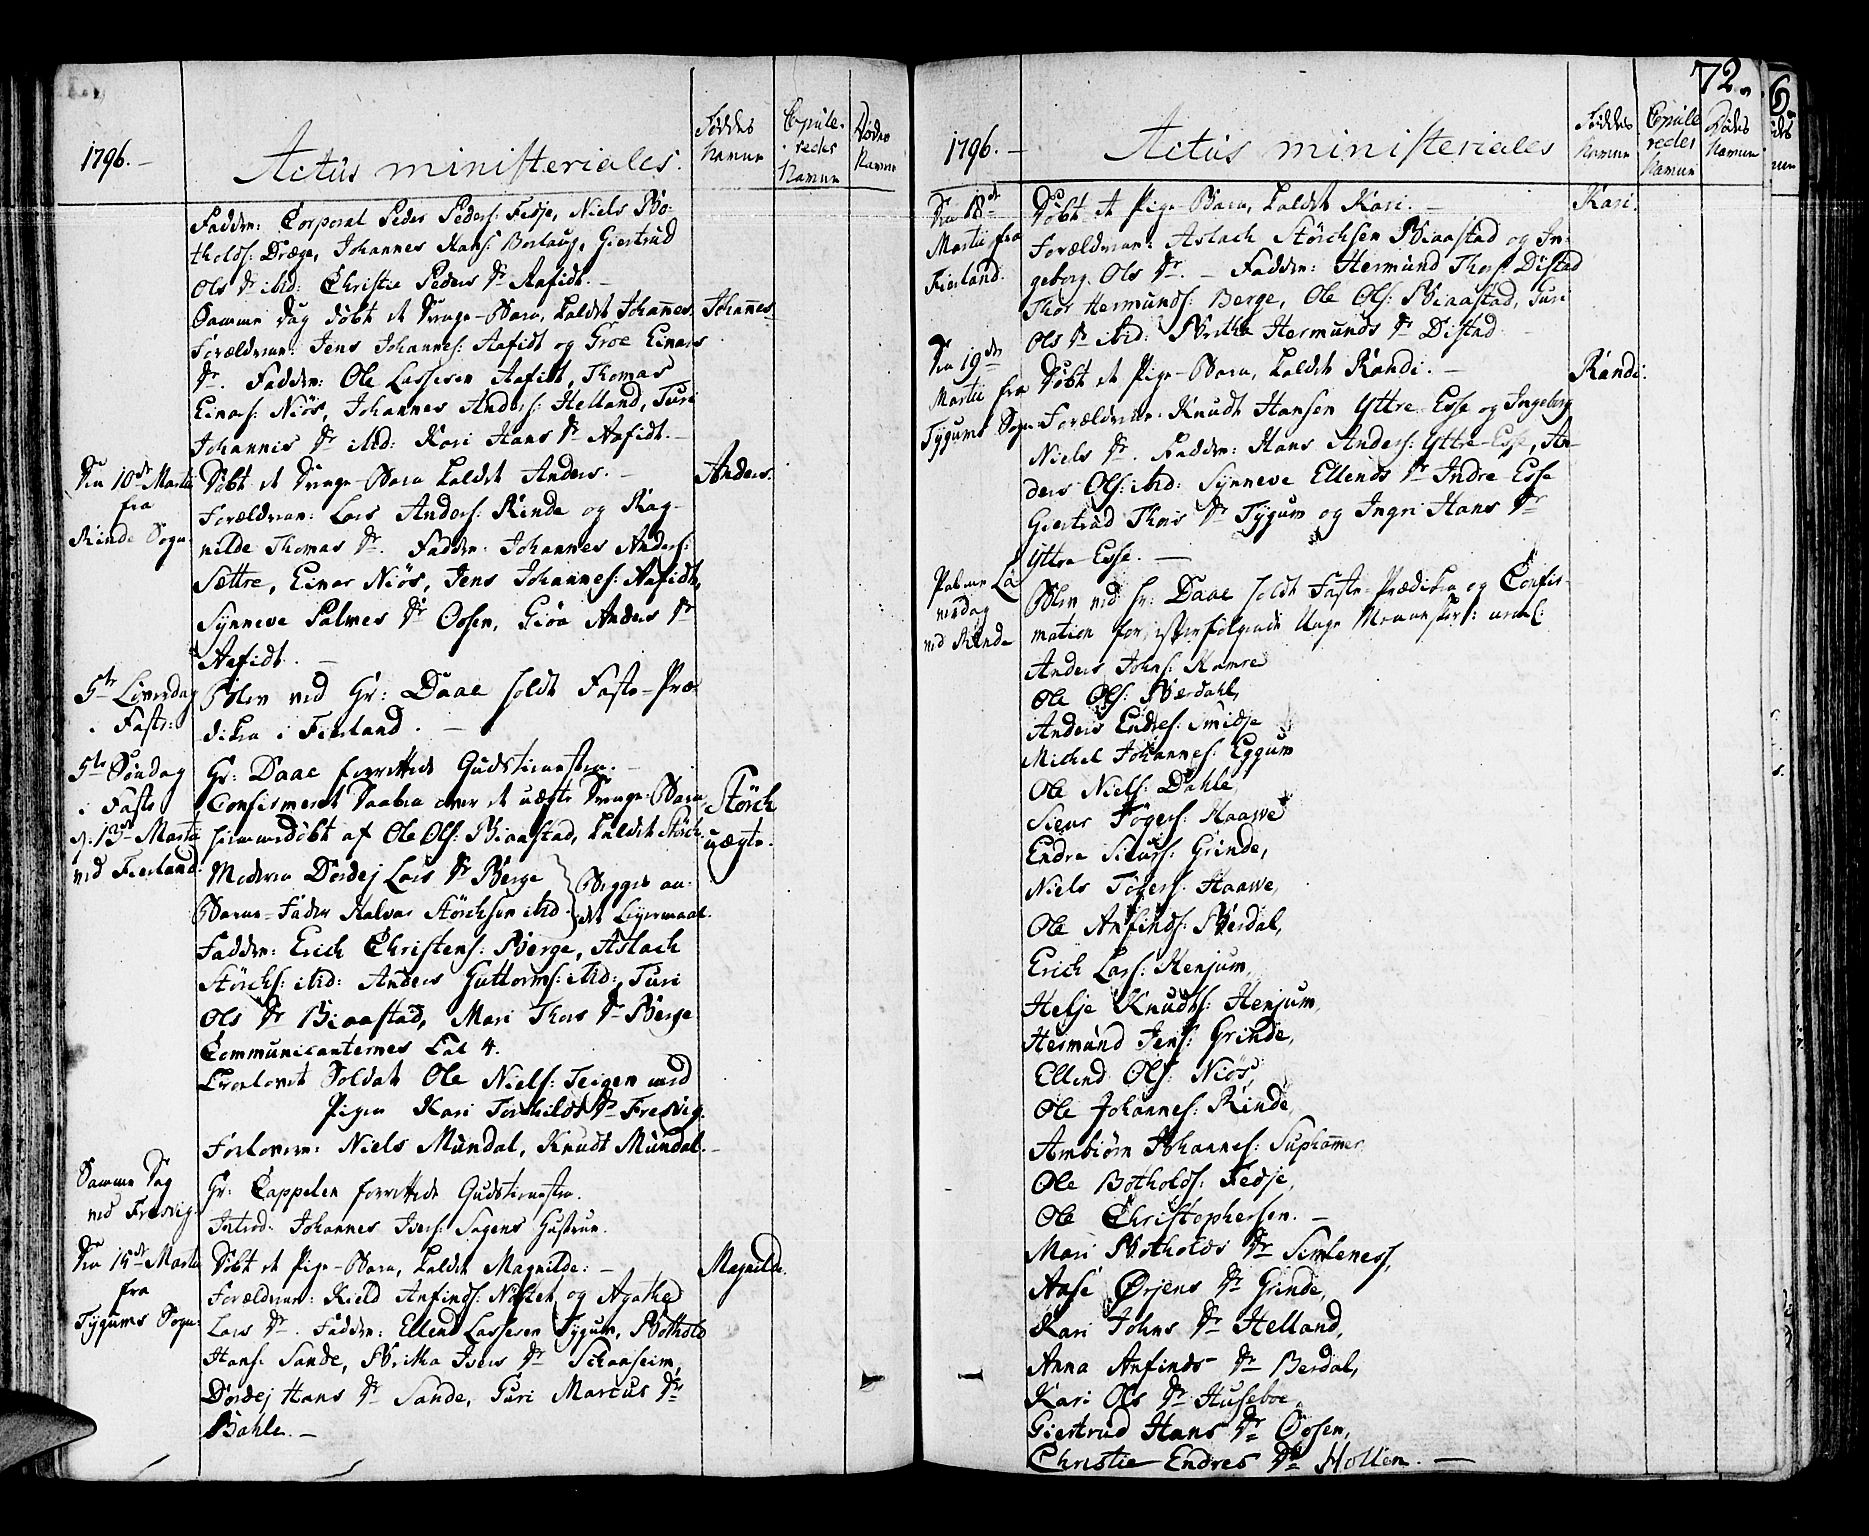 1796.
Actus ministeriales.
Føddes Namne
Copule-redes Namne
Dødes Namne
Faddere: Corporal Peder Peders: Fedje, Niels Bo-
tholds: Dræge, Johannes Hans: Borlaug, Giertrud
Ols Dr ibid: Christie Peders Dr Aafidt. –
Samme Dag døbt et Drenge-Barn, kaldet Johannes.
Johannes.
Forældrene: Jens Johannes: Aafidt og Groe Einars
Dr. Faddere: Ole Lassesen Aafidt, Thomas
Einas: Niös, Johannes Anders: Helland, Turi
Johannis Dr ibid: Kari Hans Dr Aafidt. –
Den 10de Martii
fra
Rinde Sogn
Døbt et Drenge-Barn kaldet Anders. –
Anders.
Forældrene: Lars Anders: Rinde og Rag-
nilde Thomas Dr. Faddere: Johannes Anders:
Settre, Einar Niös, Jens Johannes: Aafidt,
Synneve Palmes Dr Ossen, Giöa Anders Dr
Aafidt. –
5te Løverdag
i Faste:
Blev ved Hr: Daae holdt Faste-Præ-
diken i Fierland. –
5te Søndag
i Faste
d: 13de Martii
ved Fierland.
Hr: Daae forrettede Gudstienesten. –
Confirmeret Daaben over et uægte Drenge-Barn,
Störch
uægte.
hiemmedøbt af Ole Ols: Biaastad, kaldet Störch.
Moderen Dordej Lars Dr Berge
Barne-Fader Halvor Störchsen ibid.
Begges an-
det Leyermaal.
Faddere: Erich Christens: Berge, Aslach
Störchs: ibid: Anders Guttorms: ibid:, Turi
Ols Dr Biaastad, Mari Thors Dr Berge
Communicanternes Tal 4.
Troelovet Soldat Ole Niels: Teigen med
Pigen Kari Torchilds Dr Fresvig.
Forlovere: Niels Mundal, Knudt Mundal. –
Samme Dag
ved Fresvig.
Hr: Cappelen forrettede Gudstienesten.
Introd: Johannes Ivers: Sagens Hustrue.
Den 15de Martii
fra
Tygums Sogn.
Døbt et Pige-Barn, kaldet Magnilde. –
Magnilde.
Forældrene: Kield Anfinds: Nösteh og Agathe
Lars Dr. Faddere: Ellend Lassesen Tygum, Bothold
Hans: Sande, Britha Ivers Dr Schaasheim,
Dordej Hans Dr Sande, Turi Marcus Dr
Bahle. –
72.
1796. –
Actus ministeriales
Føddes Namne
Copule redes Namne
Dødes Namne
Den 18de
Martii fra
Fierland.
Døbt et Pige-Barn, kaldet Kari. –
Kari.
Forældrene: Aslach Störchsen Biaastad og In-
geborg Ols Dr. – Faddere: Hermund Thors: Distad
Thor Hermunds: Berge, Ole Ols: Biaastad, Turi
Ols Dr ibid: Britha Hermunds Dr Distad. –
Den 19de
Martii fra
Tygums Sogn
Døbt et Pige-Barn, kaldet Randi. –
Randi.
Forældrene: Knudt Hansen Yttre-Esse og Ingeborg
Niels Dr. Faddere: Hans Anders: Yttre-Esse, An-
ders Ols: ibid: Synneve Ellends Dr Indre-Esse
Giertrud Thors Dr Tygum og Ingri Hans Dr
Yttre-Esse. –
Palme Lö-
verdag
ved Rinde
Blev ved Hr: Daae holdt Faste-Prædiken og Confir-
mation for efterfølgende Unge Mennesker:
Anders Johns: Hamre
Ole Ols: Bærdahl,
Anders Endres: Smidje
Michel Johannes: Eggum
Ole Niels: Dahle,
Sieur Töger: Haawe
Endre Sieurs: Grinde,
Niels Töger: Haawe,
Ole Anfinds: Berdal,
Erich Lars: Henjum,
Helje Knudts: Henjum,
Hermund Jens: Grinde,
Ellend Ols: Niös,
Ole Johannes: Rinde,
Ambiörn Johannes: Suphamer
Ole Botholds: Fedje,
Ole Christophersen. –
Mari Botholds Dr Simlenes,
Aase Ørjens Dr Grinde,
Kari Johns Dr Helland,
Anna Anfinds Dr Berdal,
Kari Ols Dr Huseboe,
Giertrud Hans Dr Ossen,
Christie Endres Dr Hollen. –